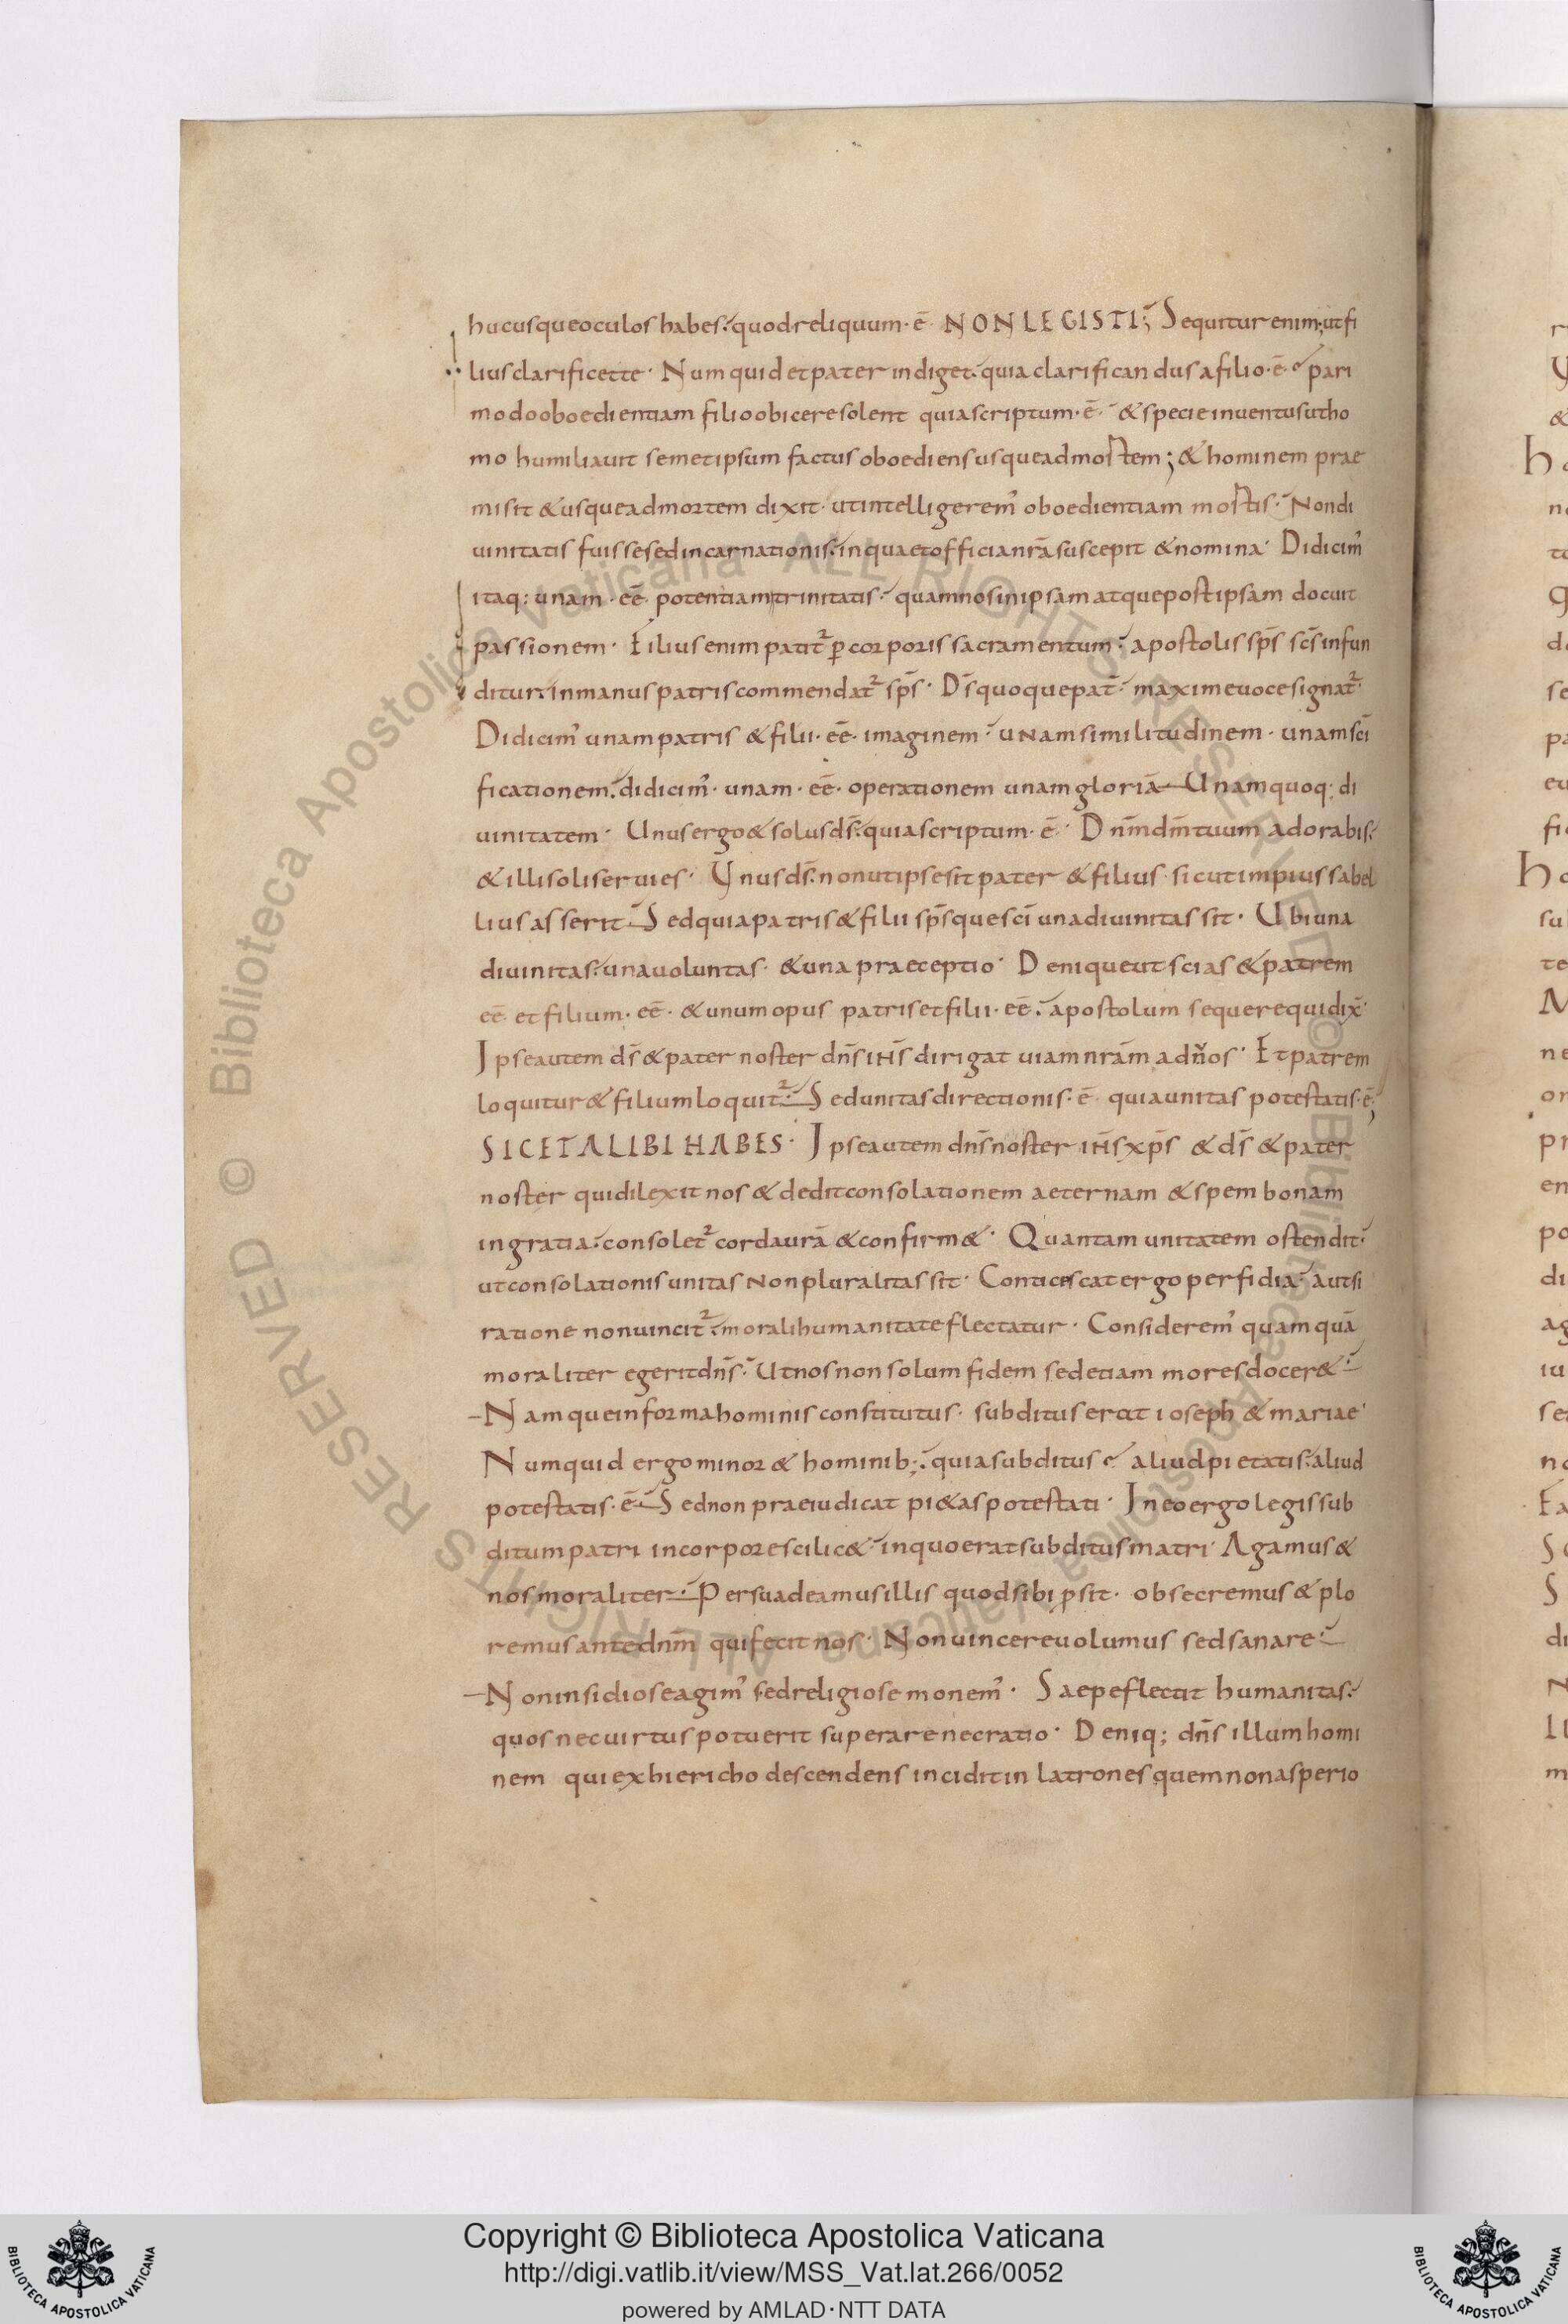 hucusque oculos habes. quod reliquum · ē NON LEGISTI; Sequitur enim; ut fi
lius clarificet te · Numquid et pater indiget. quia clarificandus a filio · ē · e pari
modo oboedientiam filio obicere solent quia scriptum · ē · & specie inventus ut ho
mo humiliavit semetipsum factus oboediens usque ad mortem; & hominem prae
misit & usque ad mortem dixit · ut intelligerem' oboedientiam mortis · Non di
uinitatis fuisse sed incarnationis. in qua et officia nr̄a suscepit & nomina · Didicim'
itaq: unam · eē · potentiam trinitatis · quam nos in ipsam atque post ipsam docuit
passionem · Filius enim patit² ꝑ corporis sacramentum · apostolis sp̄s sc̄s infun
ditur. in manus patris commendat² sp̄s · D̄s quoque pat̄ · maxime uoce signat² ·
Didicim' unam patris & filii · eē · imaginem · unam similitudinem · unam sc̄i
ficationem. didicim' · unam · eē · operationem unam gloriā Unam quoq: di
uinitatem · Unus ergo & solus d̄s. quia scriptum · ē · Dn̄m d̄m tuum adorabis.
& illi soli seruies · Unus d̄s. non ut ipse sit pater & filius · sicut impius sabel
lius asserit Sed quia patris & filii sp̄sque sc̄i una diuinitas sit · Ubi una
diuinitas. una uoluntas · & una praeceptio · Denique ut scias & patrem
eē · et filium · eē · & unum opus patris et filii · eē · apostolum sequere qui dix̄ ·
Ipse autem d̄s & pater noster dn̄s ih̄s dirigat uiam nr̄am ad ños · Et patrem
loquitur & filium loquit² · Sed unitas directionis · ē · quia unitas potestatis · ē;
SIC ET ALIBI HABES · Ipse autem dn̄s noster ih̄s xp̄s & d̄s & pater
noster qui dilexit nos & dedit consolationem aeternam & spem bonam
in gratia. consolet² corda urā & confirm& · Quantam unitatem ostendit ·
ut consolationis unitas non pluralitas sit · Conticescat ergo perfidia · aut si
ratione non uincit². morali humanitate flectatur · Considerem' quam quā
moraliter egerit dn̄s · Ut nos non solum fidem sed etiam mores docer& ·
Namque in forma hominis constitutus · subditus erat ioseph & mariae ·
Numquid ergo minor & hominib;. quia subditus e aliud pietatis. aliud
potestatis · ē · Sed non praeiudicat pi&as potestati · In eo ergo legis sub
ditum patri in corpore scilic& · in quo erat subditus matri · Agamus &
nos moraliter · Persuadeamus illis quod sibi ꝓsit · obsecremus & plo
remus ante dnm̄ qui fecit nos · Non uincere uolumus sed sanare ·
Non insidiose agim' sed religiose monem' · Saepe flectit humanitas.
quos nec uirtus potuerit superare nec ratio · Deniq; dn̄s illum homi
nem qui ex hiericho descendens incidit in latrones quem non asperio
Copyright © Biblioteca Apostolica Vaticana
http://digi.vatlib.it/view/MSS_Vat.lat.266/0052
powered by AMLAD·NTT DATA